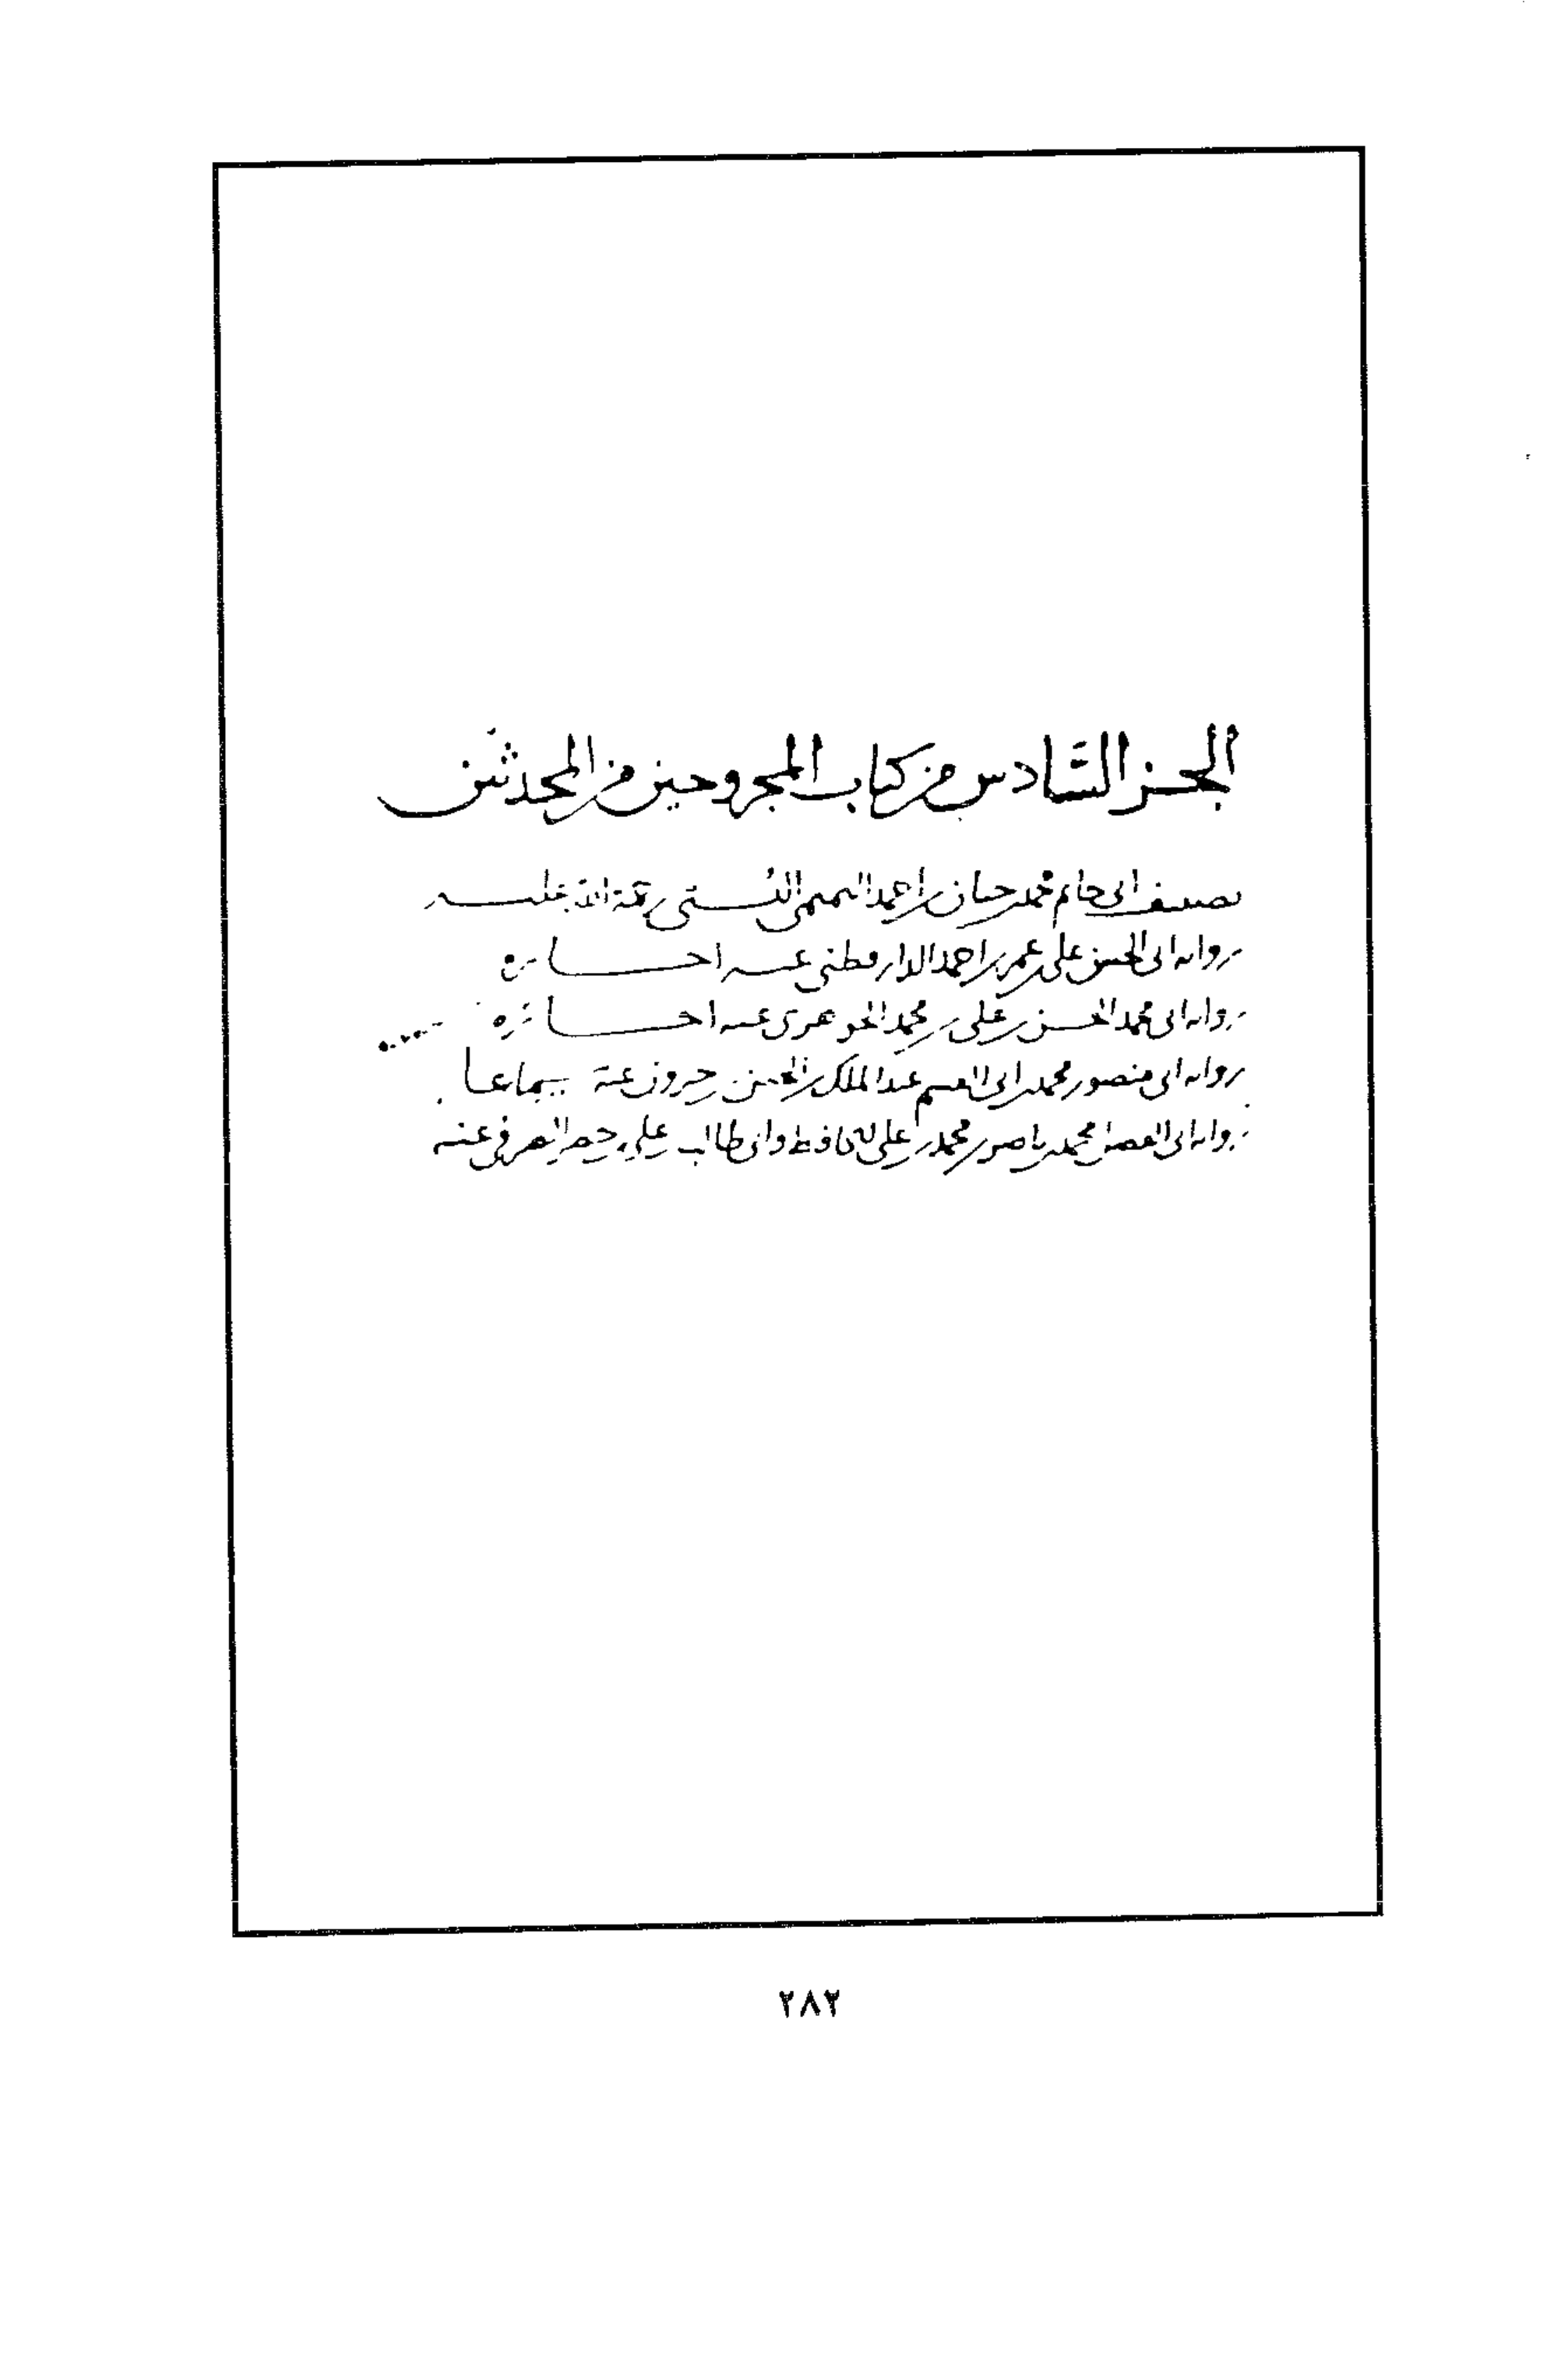 الجزء السادس من كتاب المجروحين من المحدثين
تصنيف ابى حاتم محمد بن حبان بن احمد التميمى البستى رحمة الله عليه
رواية ابى الحسن على بن عمر بن احمد الدارقطنى عنه اجازة
رواية ابى محمد الحسن بن على بن محمد الجوهرى عنه اجازة
رواية ابى منصور محمد بن عبد الملك بن الحسن بن خيرون عنه سماعا
رواية ابى الفضل محمد بن ناصر بن محمد بن على الحافظ وابى طالب على بن الصيرفى عنه
٢٨٢